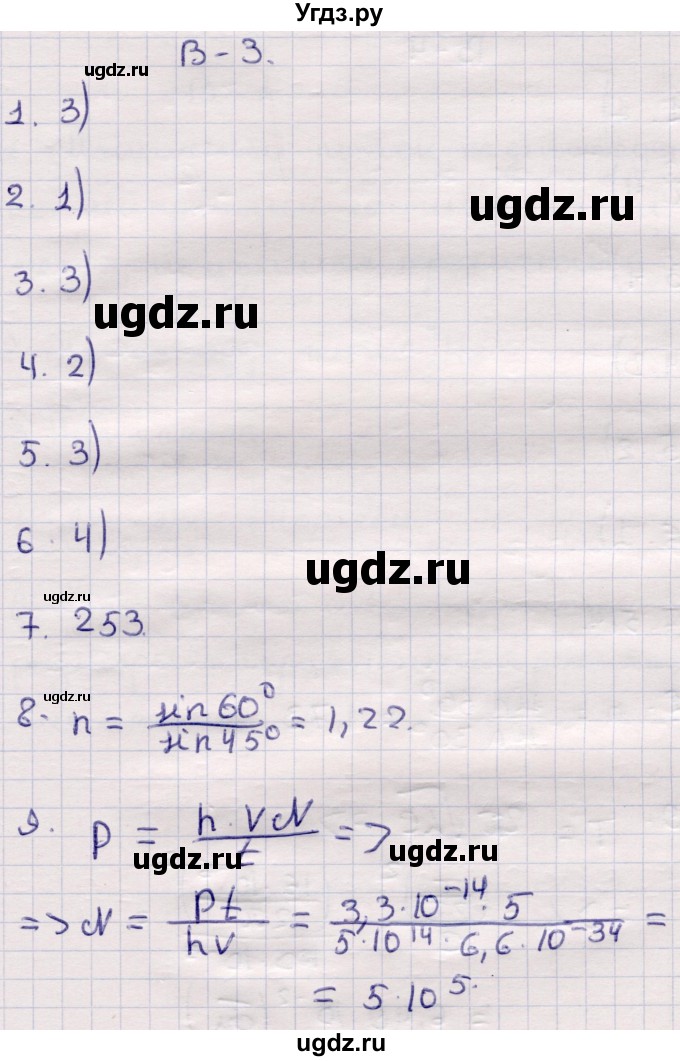 Угдз.ру
ugdz.ru
В-3.
1. 3)
2. 1)
ugdz.ru
3. 3)
ugdz.ru
4. 2)
5. 3)
6. 4)
ugdz.ru
ugdz.ru
7. 253.
ugdz.ru
8. n = sin 60⁰ / sin 45⁰ = 1,22.
9. P = h·νN / t =>
ugdz.ru
ugdz.ru
=> N = Pt / hν = 3,3·10⁻¹⁴·5 / 5·10¹⁴·6,6·10⁻³⁴ =
= 5·10⁵.
ugdz.ru